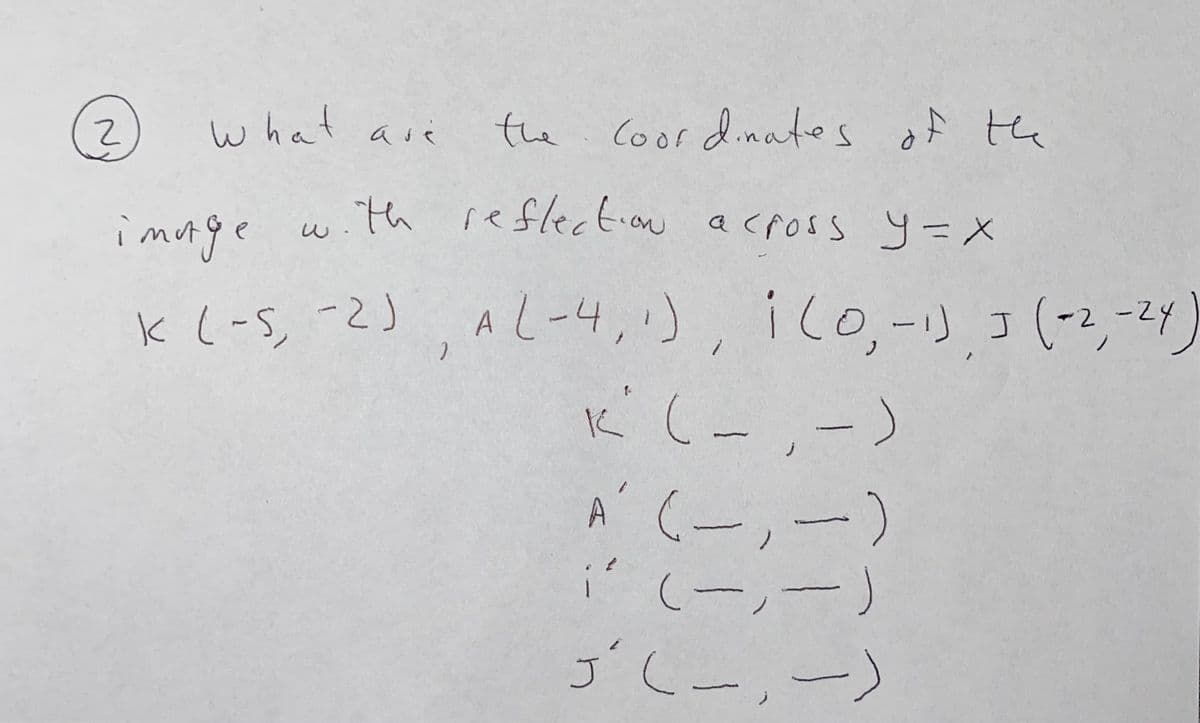 ② What are the coordinates of the
image with reflection across y=x
K (-5, -2), A (-4, 1), i (0, -1), J (-2, -24)
K' (_, _)
A' (_, _)
i' (_, _)
J' (_, _)